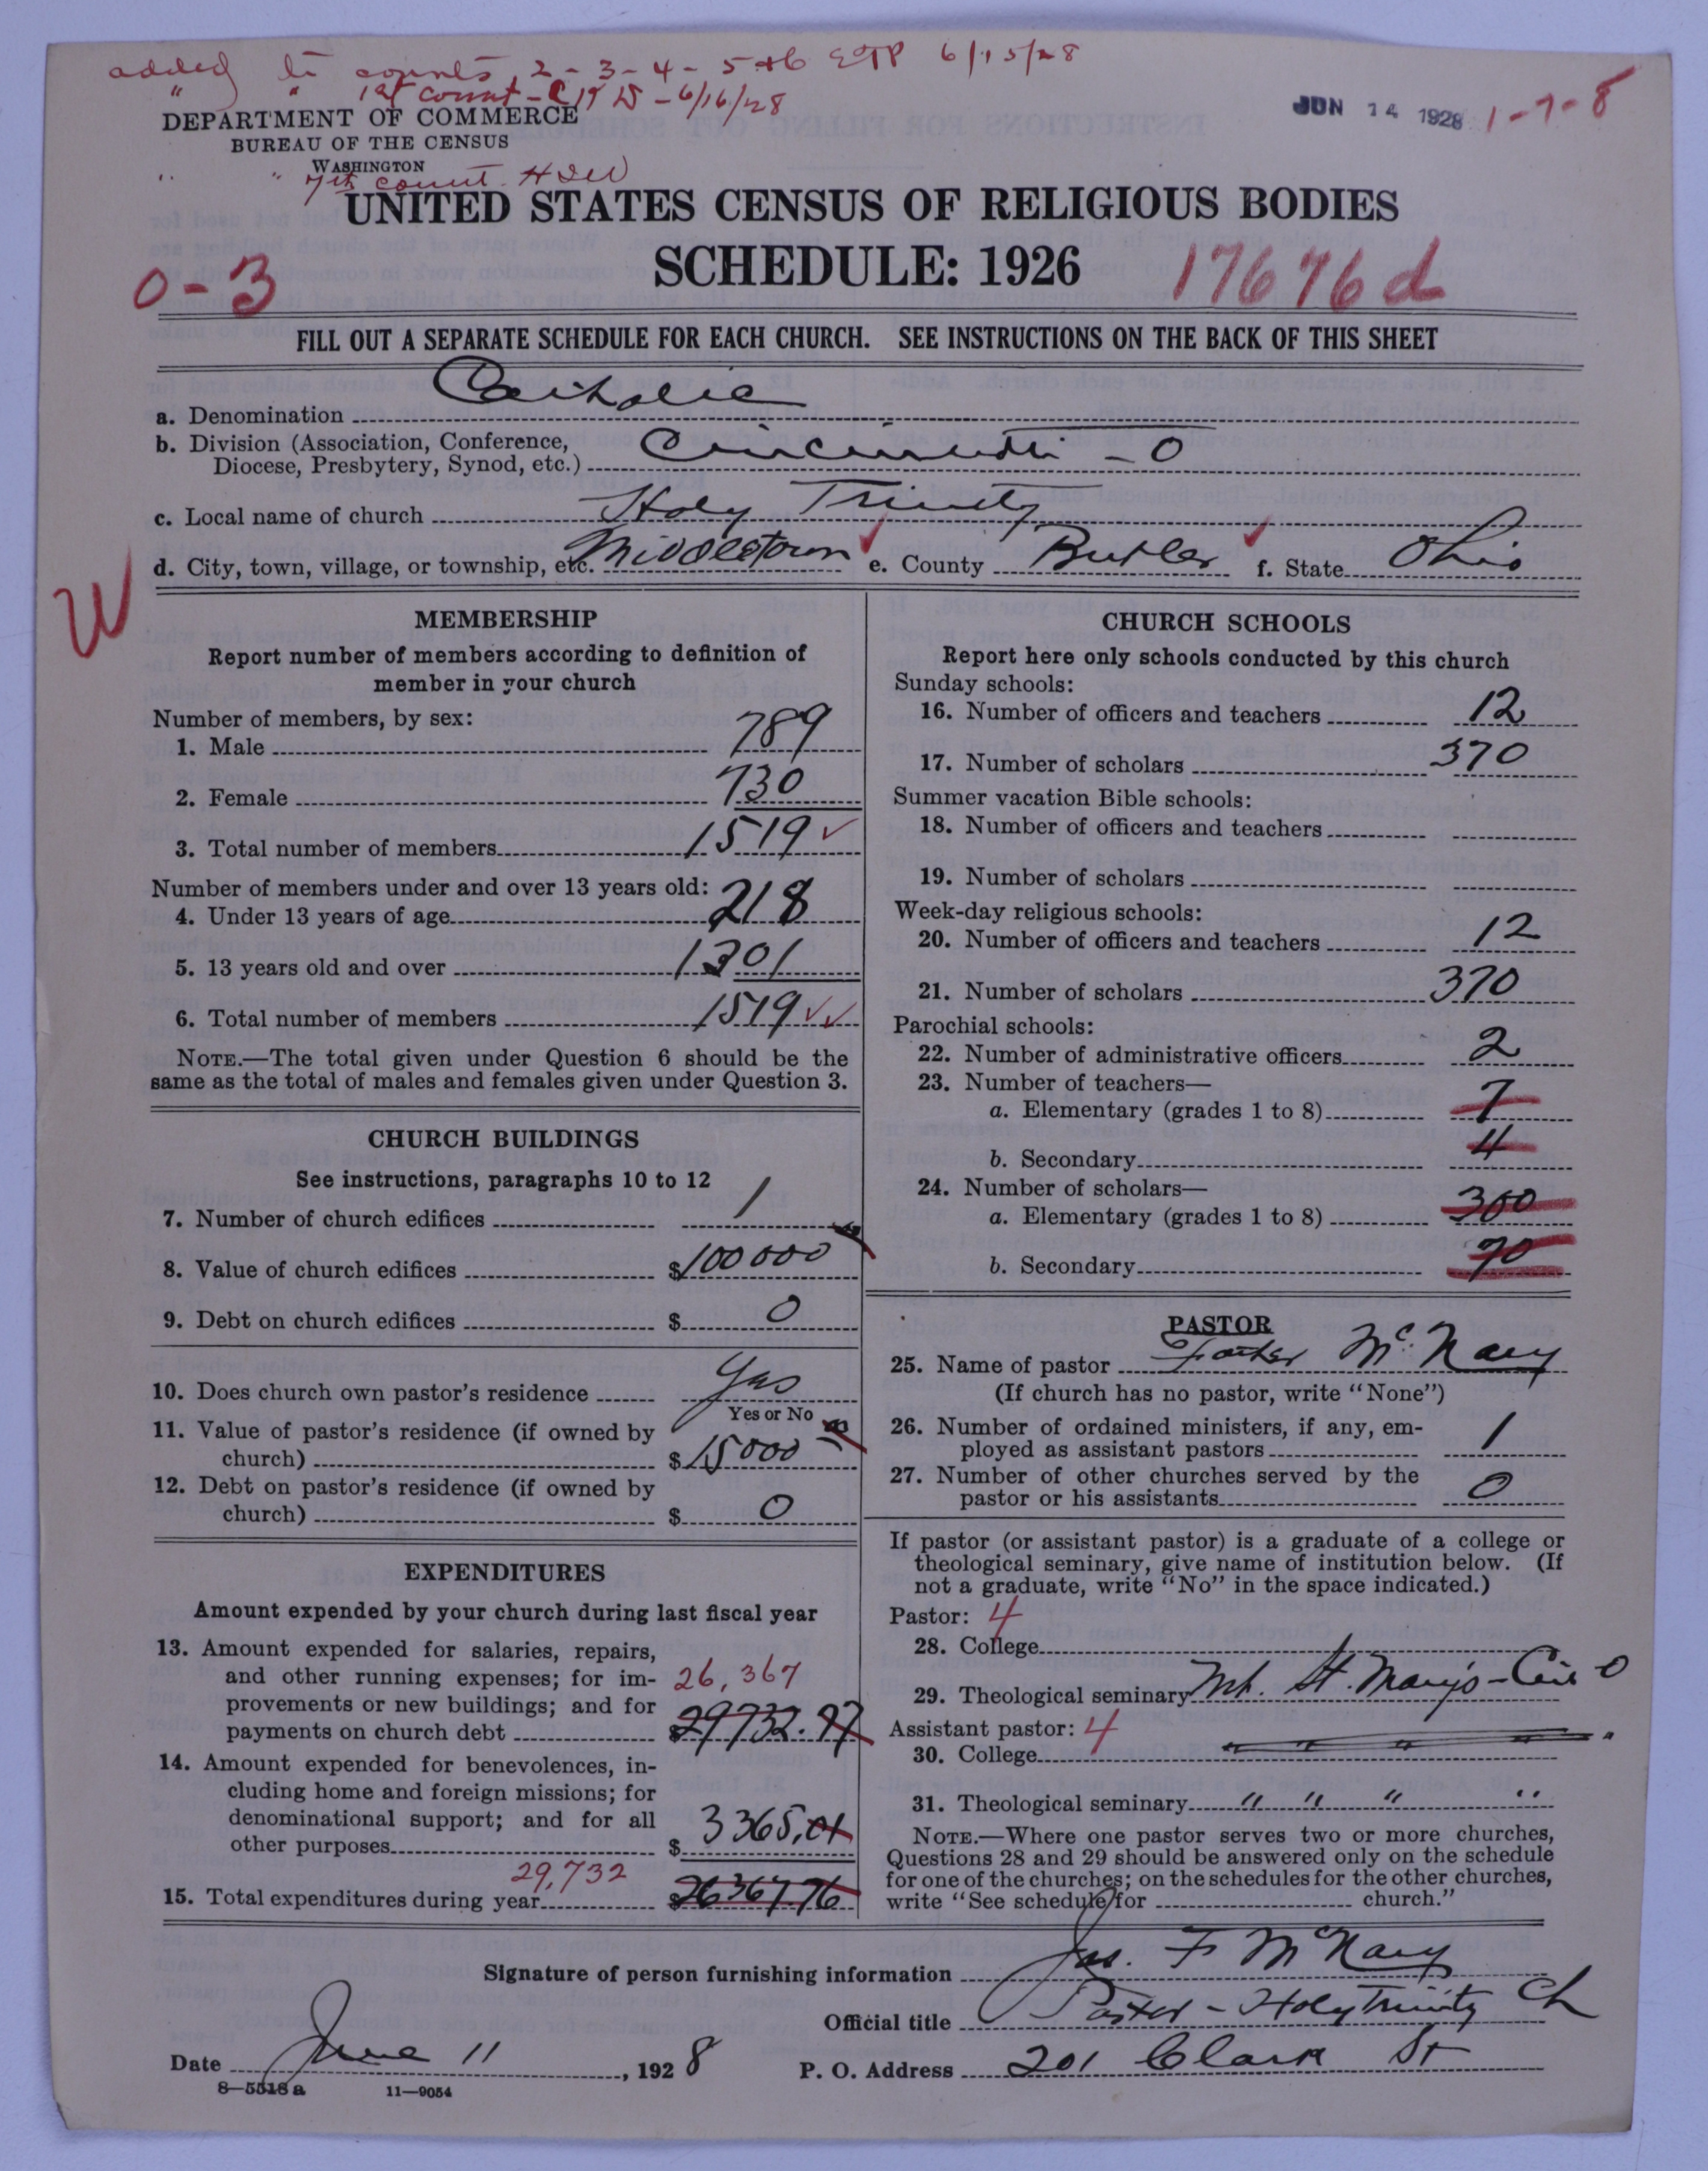 added to counts 2-3-4-5+6 EJP 6/15/28
" " 1st count - 6/16/28
DEPARTMENT OF COMMERCE
BUREAU OF THE CENSUS
WASHINGTON
" " 7th count
JUN 14 1928 1-7-8
UNITED STATES CENSUS OF RELIGIOUS BODIES
SCHEDULE: 1926
0-3
17676d
FILL OUT A SEPARATE SCHEDULE FOR EACH CHURCH. SEE INSTRUCTIONS ON THE BACK OF THIS SHEET
a. Denomination Catholic
b. Division (Association, Conference,
Diocese, Presbytery, Synod, etc.) Cincinnati - O
c. Local name of church Holy Trinity
d. City, town, village, or township, etc. Middletown e. County Butler f. State Ohio
W
MEMBERSHIP
Report number of members according to definition of
member in your church
Number of members, by sex:
1. Male 789
2. Female 730
3. Total number of members 1519
Number of members under and over 13 years old:
4. Under 13 years of age 218
5. 13 years old and over 1301
6. Total number of members 1519
NOTE.—The total given under Question 6 should be the
same as the total of males and females given under Question 3.
CHURCH BUILDINGS
See instructions, paragraphs 10 to 12
7. Number of church edifices 1
8. Value of church edifices $100000
9. Debt on church edifices $ 0
10. Does church own pastor's residence Yes
Yes or No
11. Value of pastor's residence (if owned by
church) $15000
12. Debt on pastor's residence (if owned by
church) $ 0
EXPENDITURES
Amount expended by your church during last fiscal year
13. Amount expended for salaries, repairs,
and other running expenses; for im- 26,367
provements or new buildings; and for
payments on church debt $29732.77
14. Amount expended for benevolences, in-
cluding home and foreign missions; for
denominational support; and for all
other purposes $ 3365.01
29,732
15. Total expenditures during year $26367.76
CHURCH SCHOOLS
Report here only schools conducted by this church
Sunday schools:
16. Number of officers and teachers 12
17. Number of scholars 370
Summer vacation Bible schools:
18. Number of officers and teachers
19. Number of scholars
Week-day religious schools:
20. Number of officers and teachers 12
21. Number of scholars 370
Parochial schools:
22. Number of administrative officers 2
23. Number of teachers—
a. Elementary (grades 1 to 8) 7
b. Secondary 4
24. Number of scholars—
a. Elementary (grades 1 to 8) 300
b. Secondary 70
PASTOR
25. Name of pastor Father McNary
(If church has no pastor, write "None")
26. Number of ordained ministers, if any, em-
ployed as assistant pastors 1
27. Number of other churches served by the
pastor or his assistants 0
If pastor (or assistant pastor) is a graduate of a college or
theological seminary, give name of institution below. (If
not a graduate, write "No" in the space indicated.)
Pastor: 4
28. College
29. Theological seminary Mt. St. Mary's - Cin O
Assistant pastor: 4
30. College " " " "
31. Theological seminary " " " "
NOTE.—Where one pastor serves two or more churches,
Questions 28 and 29 should be answered only on the schedule
for one of the churches; on the schedules for the other churches,
write "See schedule for church."
Signature of person furnishing information Jas. F McNary
Official title Pastor - Holy Trinity Ch
Date June 11, 1928 P. O. Address 201 Clark St
8—5518 a 11—9054